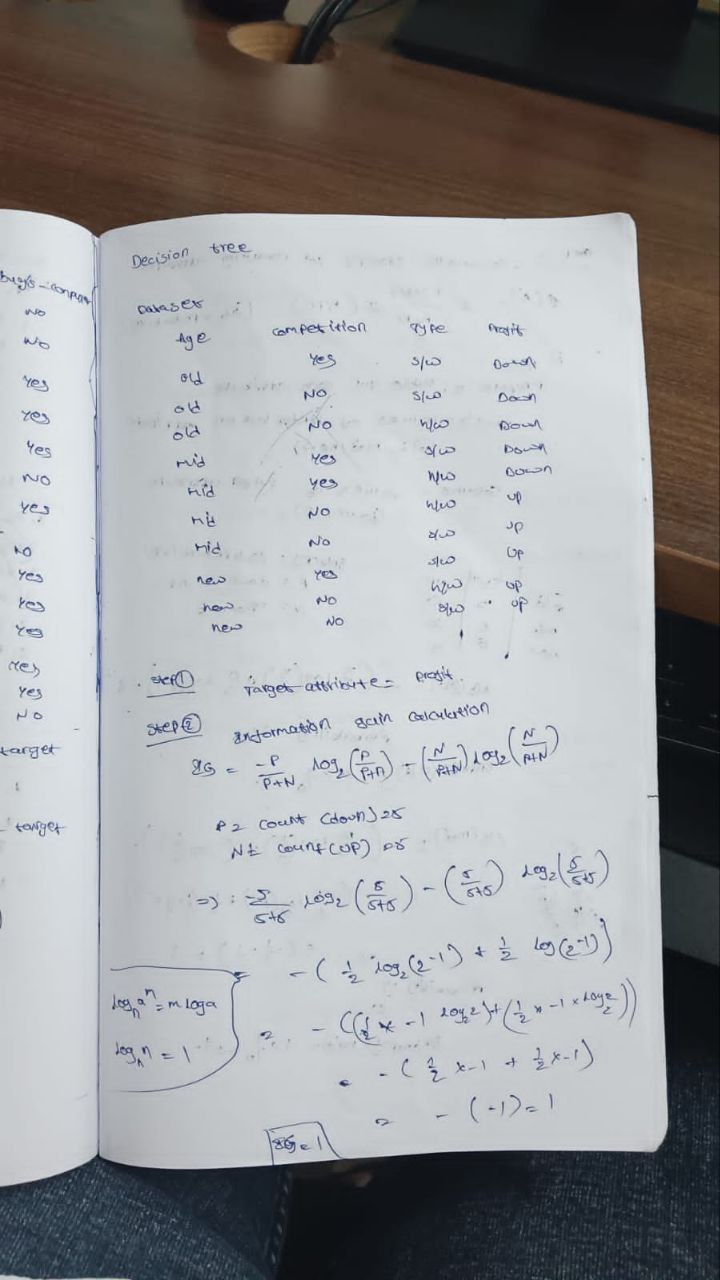 buys-comput
NO
NO
Yes
Yes
Yes
NO
Yes
NO
Yes
Yes
Yes
Yes
Yes
NO
target
target
Decision tree
Dataset :
Age competition Type Profit
old Yes s/w Down
old NO s/w Down
old NO h/w Down
mid Yes s/w Down
mid Yes h/w Down
mid NO h/w up
mid NO s/w up
new Yes s/w Up
new NO h/w up
new NO s/w up
Step① Target attribute = profit.
Step② Information gain calculation
IG = -P/P+N log₂(P/P+N) - (N/P+N) log₂(N/P+N)
P = count (down) = 5
N = count (up) = 5
=> -5/5+5 log₂(5/5+5) - (5/5+5) log₂(5/5+5)
= -(1/2 log₂(2⁻¹) + 1/2 log(2⁻¹))
logₙaⁿ = n log a
logₙn = 1
= -((1/2 x -1 log₂2) + (1/2 x -1 x log₂2))
= -(1/2 x-1 + 1/2 x-1)
= -(-1) = 1
IG = 1